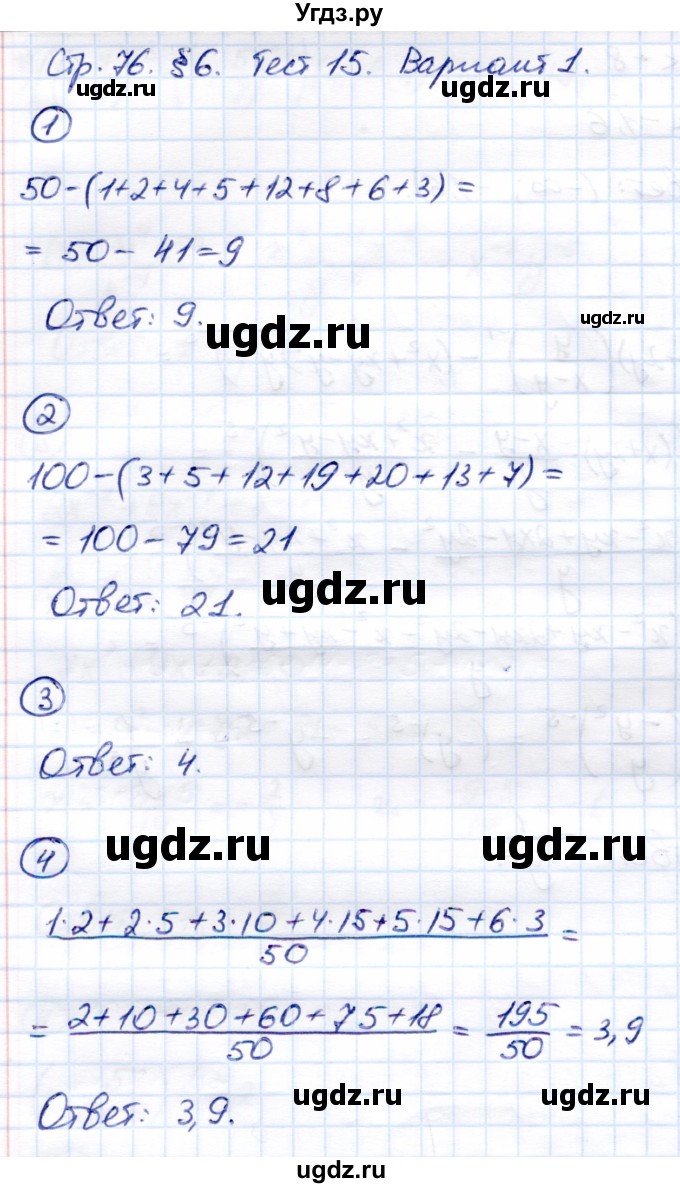 Угдз.ру
Стр. 76. §6. Тест 15. Вариант 1.
ugdz.ru ugdz.ru ugdz.ru
1
50-(1+2+4+5+12+8+6+3)=
= 50 - 41 = 9
Ответ: 9.
ugdz.ru ugdz.ru
2
100-(3+5+12+19+20+13+7)=
= 100 - 79 = 21
Ответ: 21.
ugdz.ru
3
Ответ: 4.
ugdz.ru ugdz.ru
4
1·2+2·5+3·10+4·15+5·15+6·3 / 50 =
= 2+10+30+60+75+18 / 50 = 195 / 50 = 3,9
Ответ: 3,9.
ugdz.ru ugdz.ru
ugdz.ru